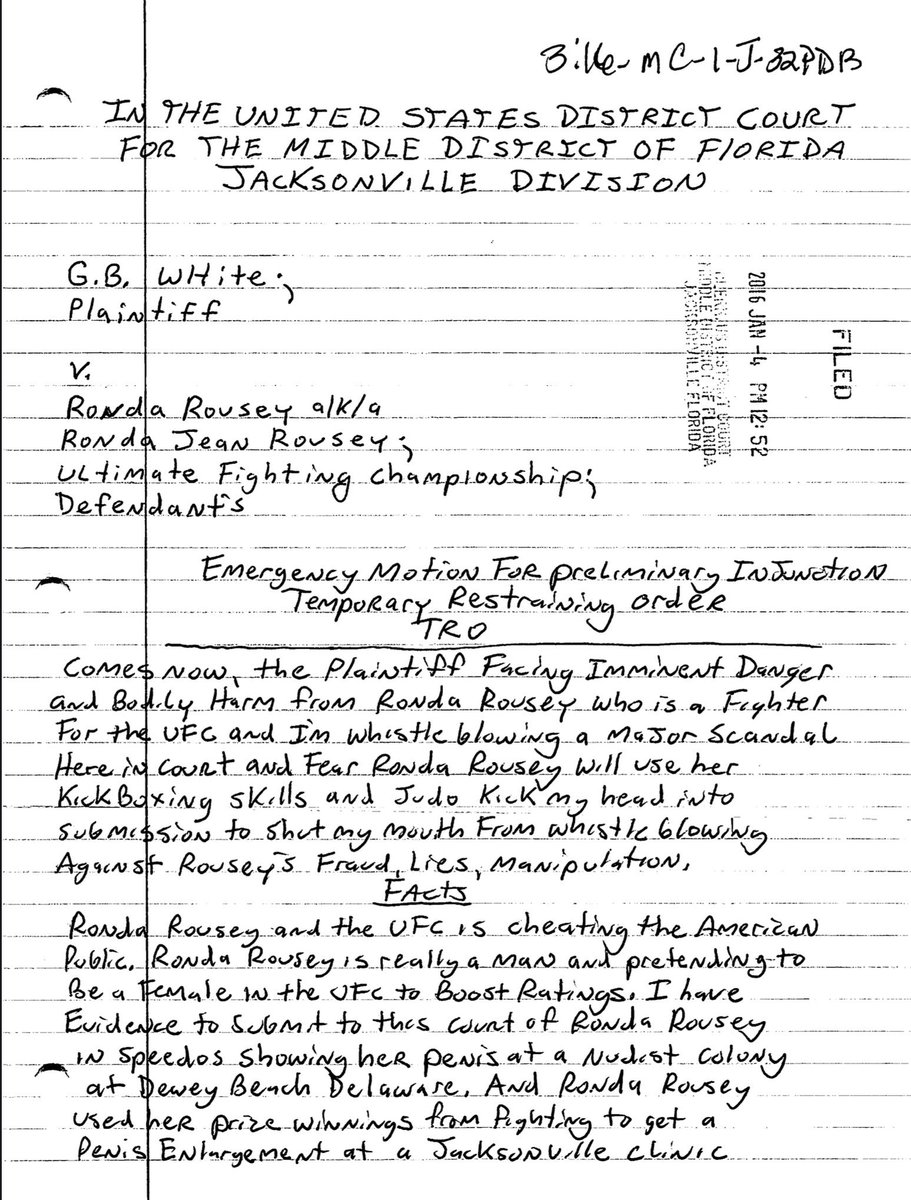 3:16-MC-1-J-32PDB
IN THE UNITED STATES DISTRICT COURT
FOR THE MIDDLE DISTRICT OF FLORIDA
JACKSONVILLE DIVISION
G.B. WHite;
Plaintiff
V.
Ronda Rousey a/k/a
Ronda Jean Rousey;
Ultimate Fighting Championship;
Defendant's
FILED
2016 JAN -4 PM 12:52
DISTRICT COURT
MIDDLE DISTRICT OF FLORIDA
JACKSONVILLE FLORIDA
Emergency Motion For preliminary Injunction
Temporary Restraining order
TRO
Comes now, the Plaintiff Facing Imminent Danger
and Bodily Harm from Ronda Rousey who is a Fighter
For the UFC and I'm whistle blowing a major scandal
Here in court and Fear Ronda Rousey will use her
KickBoxing skills and Judo Kick my head into
submission to shut my mouth From whistle blowing
Against Rousey's Fraud, Lies, manipulation.
FActs
Ronda Rousey and the UFC is cheating the American
Public. Ronda Rousey is really a man and pretending to
Be a Female in the UFC to Boost Ratings. I have
Evidence to submit to this court of Ronda Rousey
in speedos showing her penis at a Nudist Colony
at Dewey Beach Delaware. And Ronda Rousey
used her prize winnings from fighting to get a
Penis Enlargement at a Jacksonville clinic